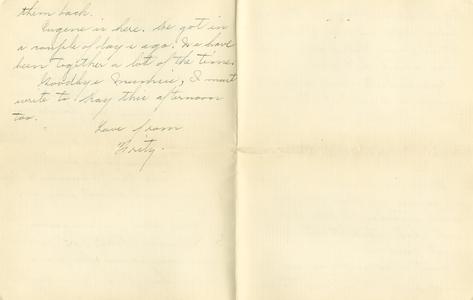 them back.
Eugene is here. He got in
a couple of days ago. We have
been together a lot of the time.
Goodbye Mumsie, I must
write to Kay this afternoon
too.
Love from
Fritz.